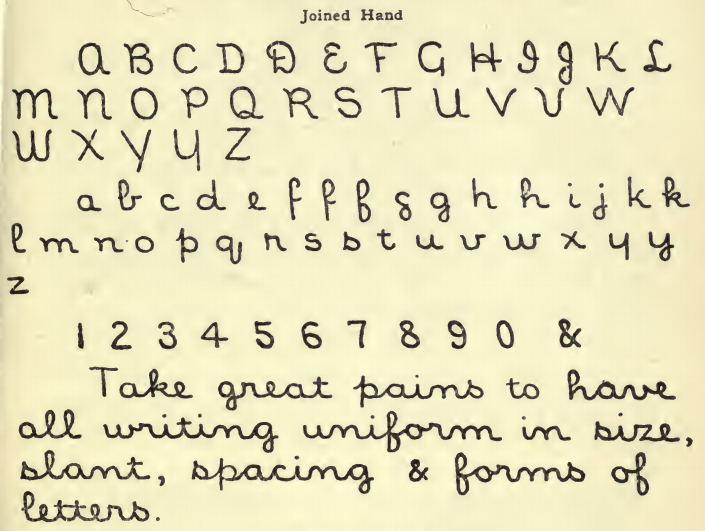 Joined Hand
A B C D D E F G H I J K L
M N O P Q R S T U V V W
W X Y Y Z
a b c d e f f f g g h h i j k k
l m n o p q r s s t u v w x y y
z
1 2 3 4 5 6 7 8 9 0 &
Take great pains to have
all writing uniform in size,
slant, spacing & forms of
letters.